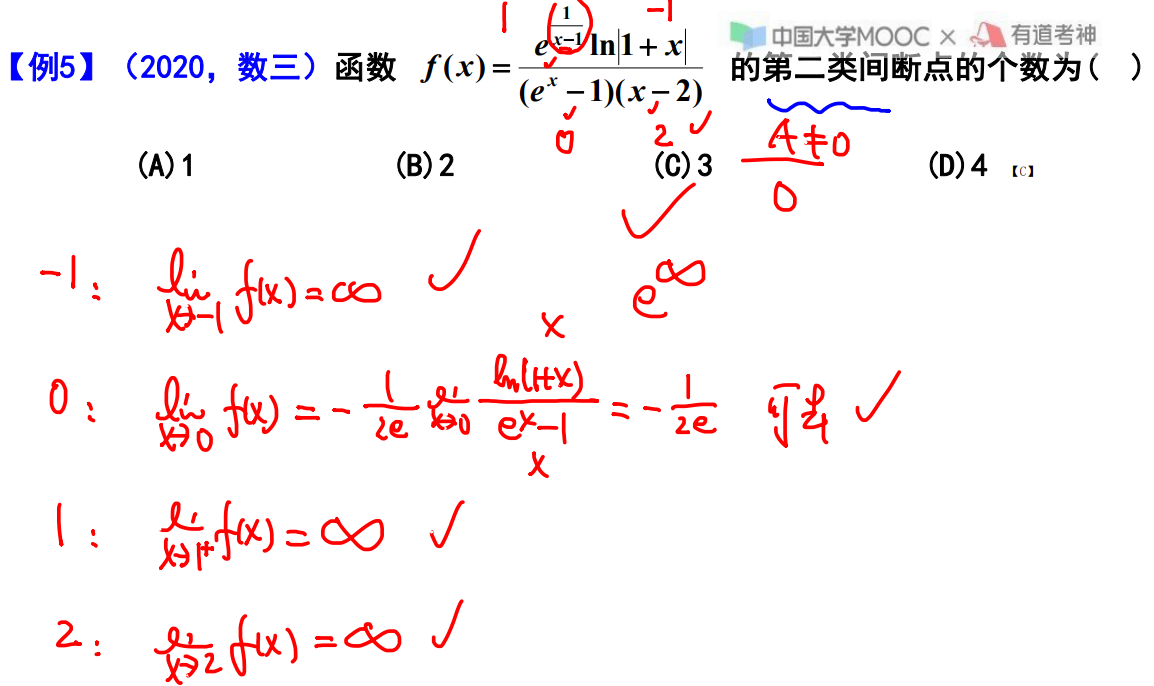 1 -1
中国大学MOOC × 有道考神
【例5】（2020，数三）函数 f(x)=e^{\frac{1}{x-1}}ln|1+x|/(e^x-1)(x-2) 的第二类间断点的个数为( )
0 2 A≠0/0
(A)1 (B)2 (C)3 (D)4 【C】
-1: lim x→-1 f(x)=∞
e^∞
x
0: lim x→0 f(x)=-1/2e lim x→0 ln(1+x)/e^x-1=-1/2e 可去
x
1: lim x→1⁺ f(x)=∞
2: lim x→2 f(x)=∞